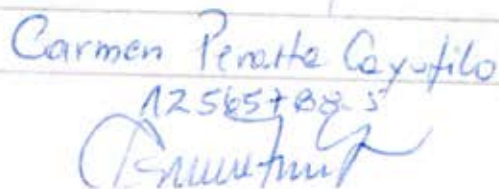 Carmen Peralta Cayufilo
12565788-5